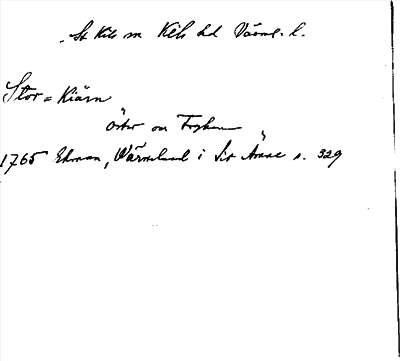 St. Kils sn Kils hd Värml. l.
Stor=Kiärn
öster om Fryken
1765 Ekman, Wärmeland i Sit Ämne s. 329